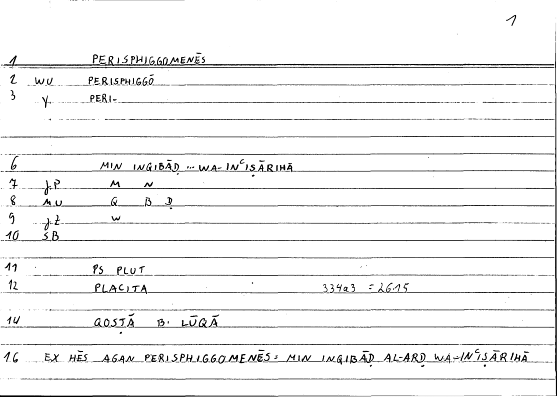 1
1 PERISPHIGGOMENĒS
2 WU PERISPHIGGŌ
3 Y. PERI-
6 MIN INQIBĀḌ ... WA-INᶜIṢĀRIHĀ
7 J.P M N
8 MU Q B Ḍ
9 J.Z W
10 SB
11 PS PLUT
12 PLACITA 334a3 = 26.15
14 QOSṬĀ B. LŪQĀ
16 EX HĒS AGAN PERISPHIGGOMENĒS: MIN INQIBĀḌ AL-ARḌ WA-INᶜIṢĀRIHĀ